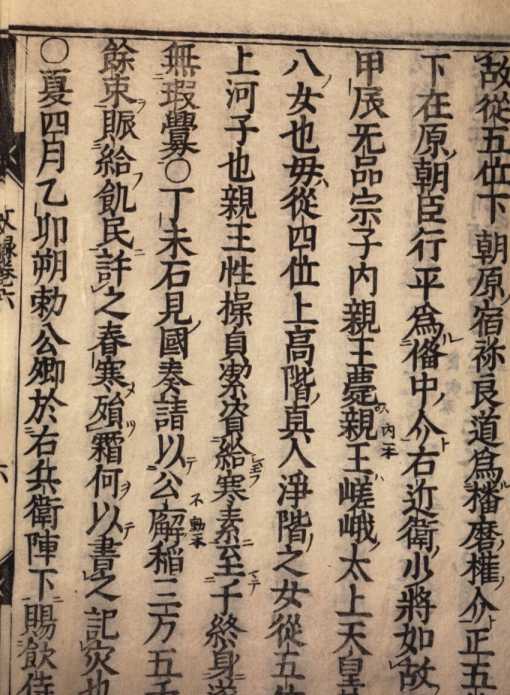 故從五位下朝原宿祢良道爲播磨權介正五
下在原朝臣行平爲俻中介右近衛少將如故
甲辰无品宗子內親王薨親王嵯峨太上天皇
八女也毋從四位上高階真人淨階之女從五
上河子也親王性操貞潔資給寒素至于終身
無瑕釁〇丁未石見國奏請以公廨稻三万五
餘束賑給飢民許之春寒殞霜何以書之記灾也
〇夏四月乙卯朔勅公卿於右兵衛陣下賜飲侍